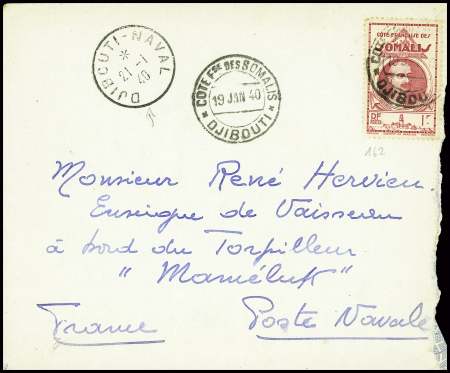 DJIBOUTI-NAVAL
*
21-1
40
* COTE FSE DES SOMALIS *
19 JAN 40
DJIBOUTI
COTE FRANÇAISE DES
SOMALIS
RF
POSTES
1F
162
Monsieur René Hervieu
Enseigne de Vaisseau
à bord du Torpilleur
" Mameluk "
France Poste Navale